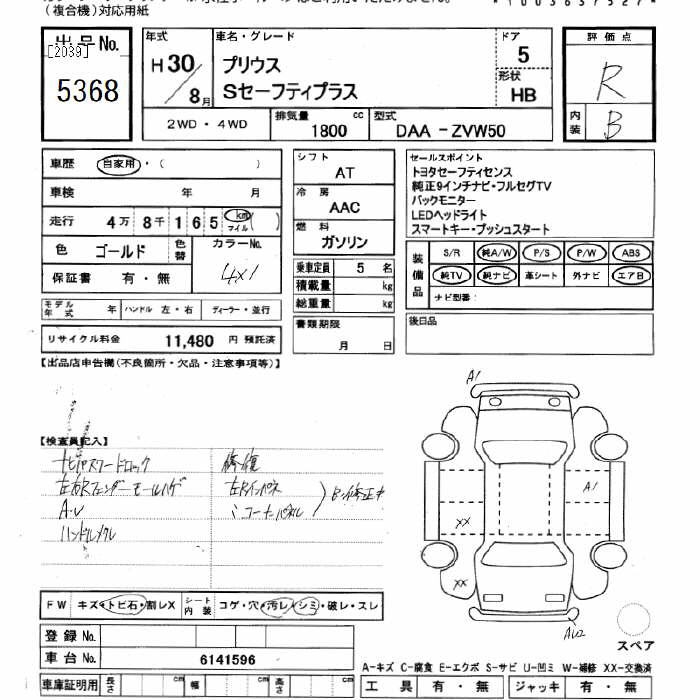 (複合機)対応用紙
出品No.
[2039]
5368
年式
H30/8月
車名・グレード
プリウス
Sセーフティプラス
ドア
5
形状
HB
評価点
R
内装
B
2WD・4WD
排気量
1800 cc
型式
DAA-ZVW50
車歴 自家用・( )
車検 年 月
走行 4万 8千 165 km マイル ( )
色 ゴールド 色替 カラーNo. 4X1
保証書 有・無
モデル年式 年 ハンドル 左・右 ディーラー・並行
リサイクル料金 11,480 円 預託済
シフト
AT
冷房
AAC
燃料
ガソリン
乗車定員 5 名
積載量 kg
総重量 kg
書類期限
月 日
セールスポイント
トヨタセーフティセンス
純正9インチナビ・フルセグTV
バックモニター
LEDヘッドライト
スマートキー・プッシュスタート
装備品
S/R 純A/W P/S P/W ABS
純TV 純ナビ 革シート 外ナビ エアB
ナビ型番:
後日品
【出品店申告欄(不良箇所・欠品・注意事項等)】
【検査員記入】
ナビパスワードロック
左右Rフェンダーモールハゲ
A・U
ハンドルスレ
修復
左Rインパネ
〃コーナーパネル
A1
A1
XX
XX
AU2
スペア
FW キズ・トビ石・割レX シート内装 コゲ・穴・汚レ・シミ・破レ・スレ
登録No.
車台No. 6141596
車庫証明用 長さ cm 幅 cm 高さ cm
A-キズ C-腐食 E-エクボ S-サビ U-凹ミ W-補修 XX-交換済
工具 有・無 ジャッキ 有・無